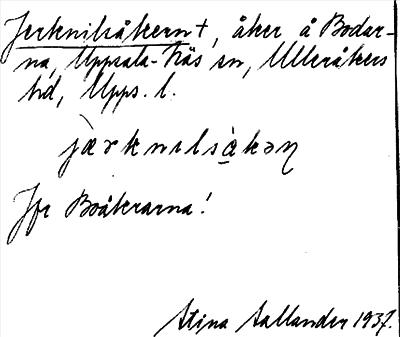 Jerknilsåkern+, åker å Bodar-
na, Uppsala-Näs sn, Ulleråkers
hd, Upps. l.
jærknilsåkəṇ
Jfr Boåkrarna!
Stina Sallander 1937.